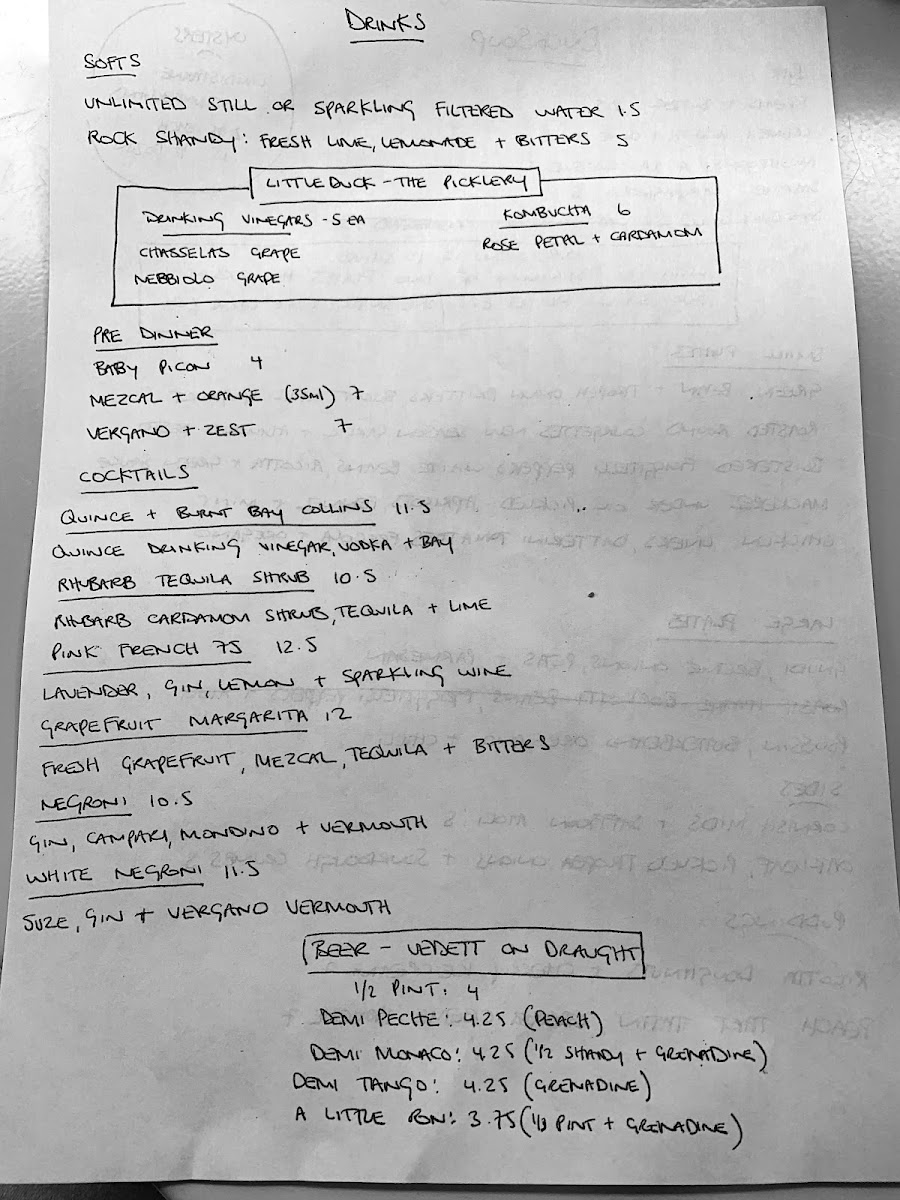 DRINKS
SOFTS
UNLIMITED STILL OR SPARKLING FILTERED WATER 1.5
ROCK SHANDY: FRESH LIME, LEMONADE + BITTERS 5
LITTLEDUCK - THE PICKLERY
DRINKING VINEGARS - 5 EA
CHASSELAS GRAPE
NEBBIOLO GRAPE
KOMBUCHA 6
ROSE PETAL + CARDAMOM
PRE DINNER
BABY PICON 4
MEZCAL + ORANGE (35ml) 7
VERGANO + ZEST 7
COCKTAILS
QUINCE + BURNT BAY COLLINS 11.5
QUINCE DRINKING VINEGAR, VODKA + BAY
RHUBARB TEQUILA SHRUB 10.5
RHUBARB CARDAMOM SHRUB, TEQUILA + LIME
PINK FRENCH 75 12.5
LAVENDER, GIN, LEMON + SPARKLING WINE
GRAPEFRUIT MARGARITA 12
FRESH GRAPEFRUIT, MEZCAL, TEQUILA + BITTERS
NEGRONI 10.5
GIN, CAMPARI, MONDINO + VERMOUTH
WHITE NEGRONI 11.5
SUZE, GIN + VERGANO VERMOUTH
BEER - VEDETT ON DRAUGHT
1/2 PINT: 4
DEMI PECHE: 4.25 (PEACH)
DEMI MONACO: 4.25 (1/2 SHANDY + GRENADINE)
DEMI TANGO: 4.25 (GRENADINE)
A LITTLE RON: 3.75 (1/3 PINT + GRENADINE)